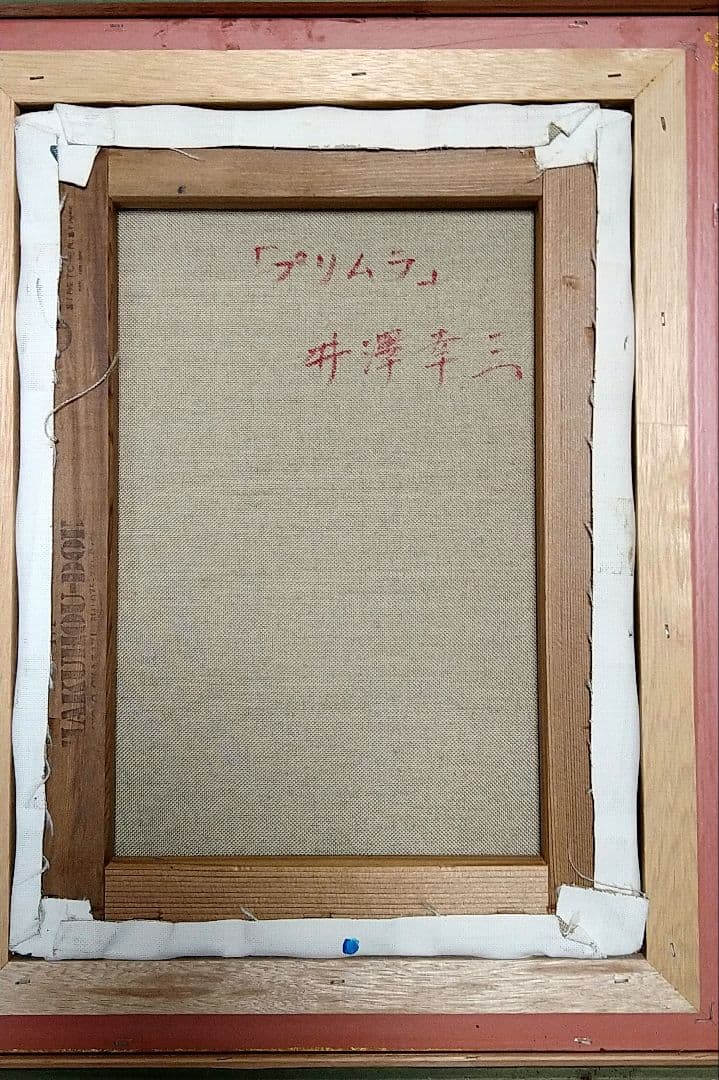 「プリムラ」
井澤幸三
TAKUHOU-DOH